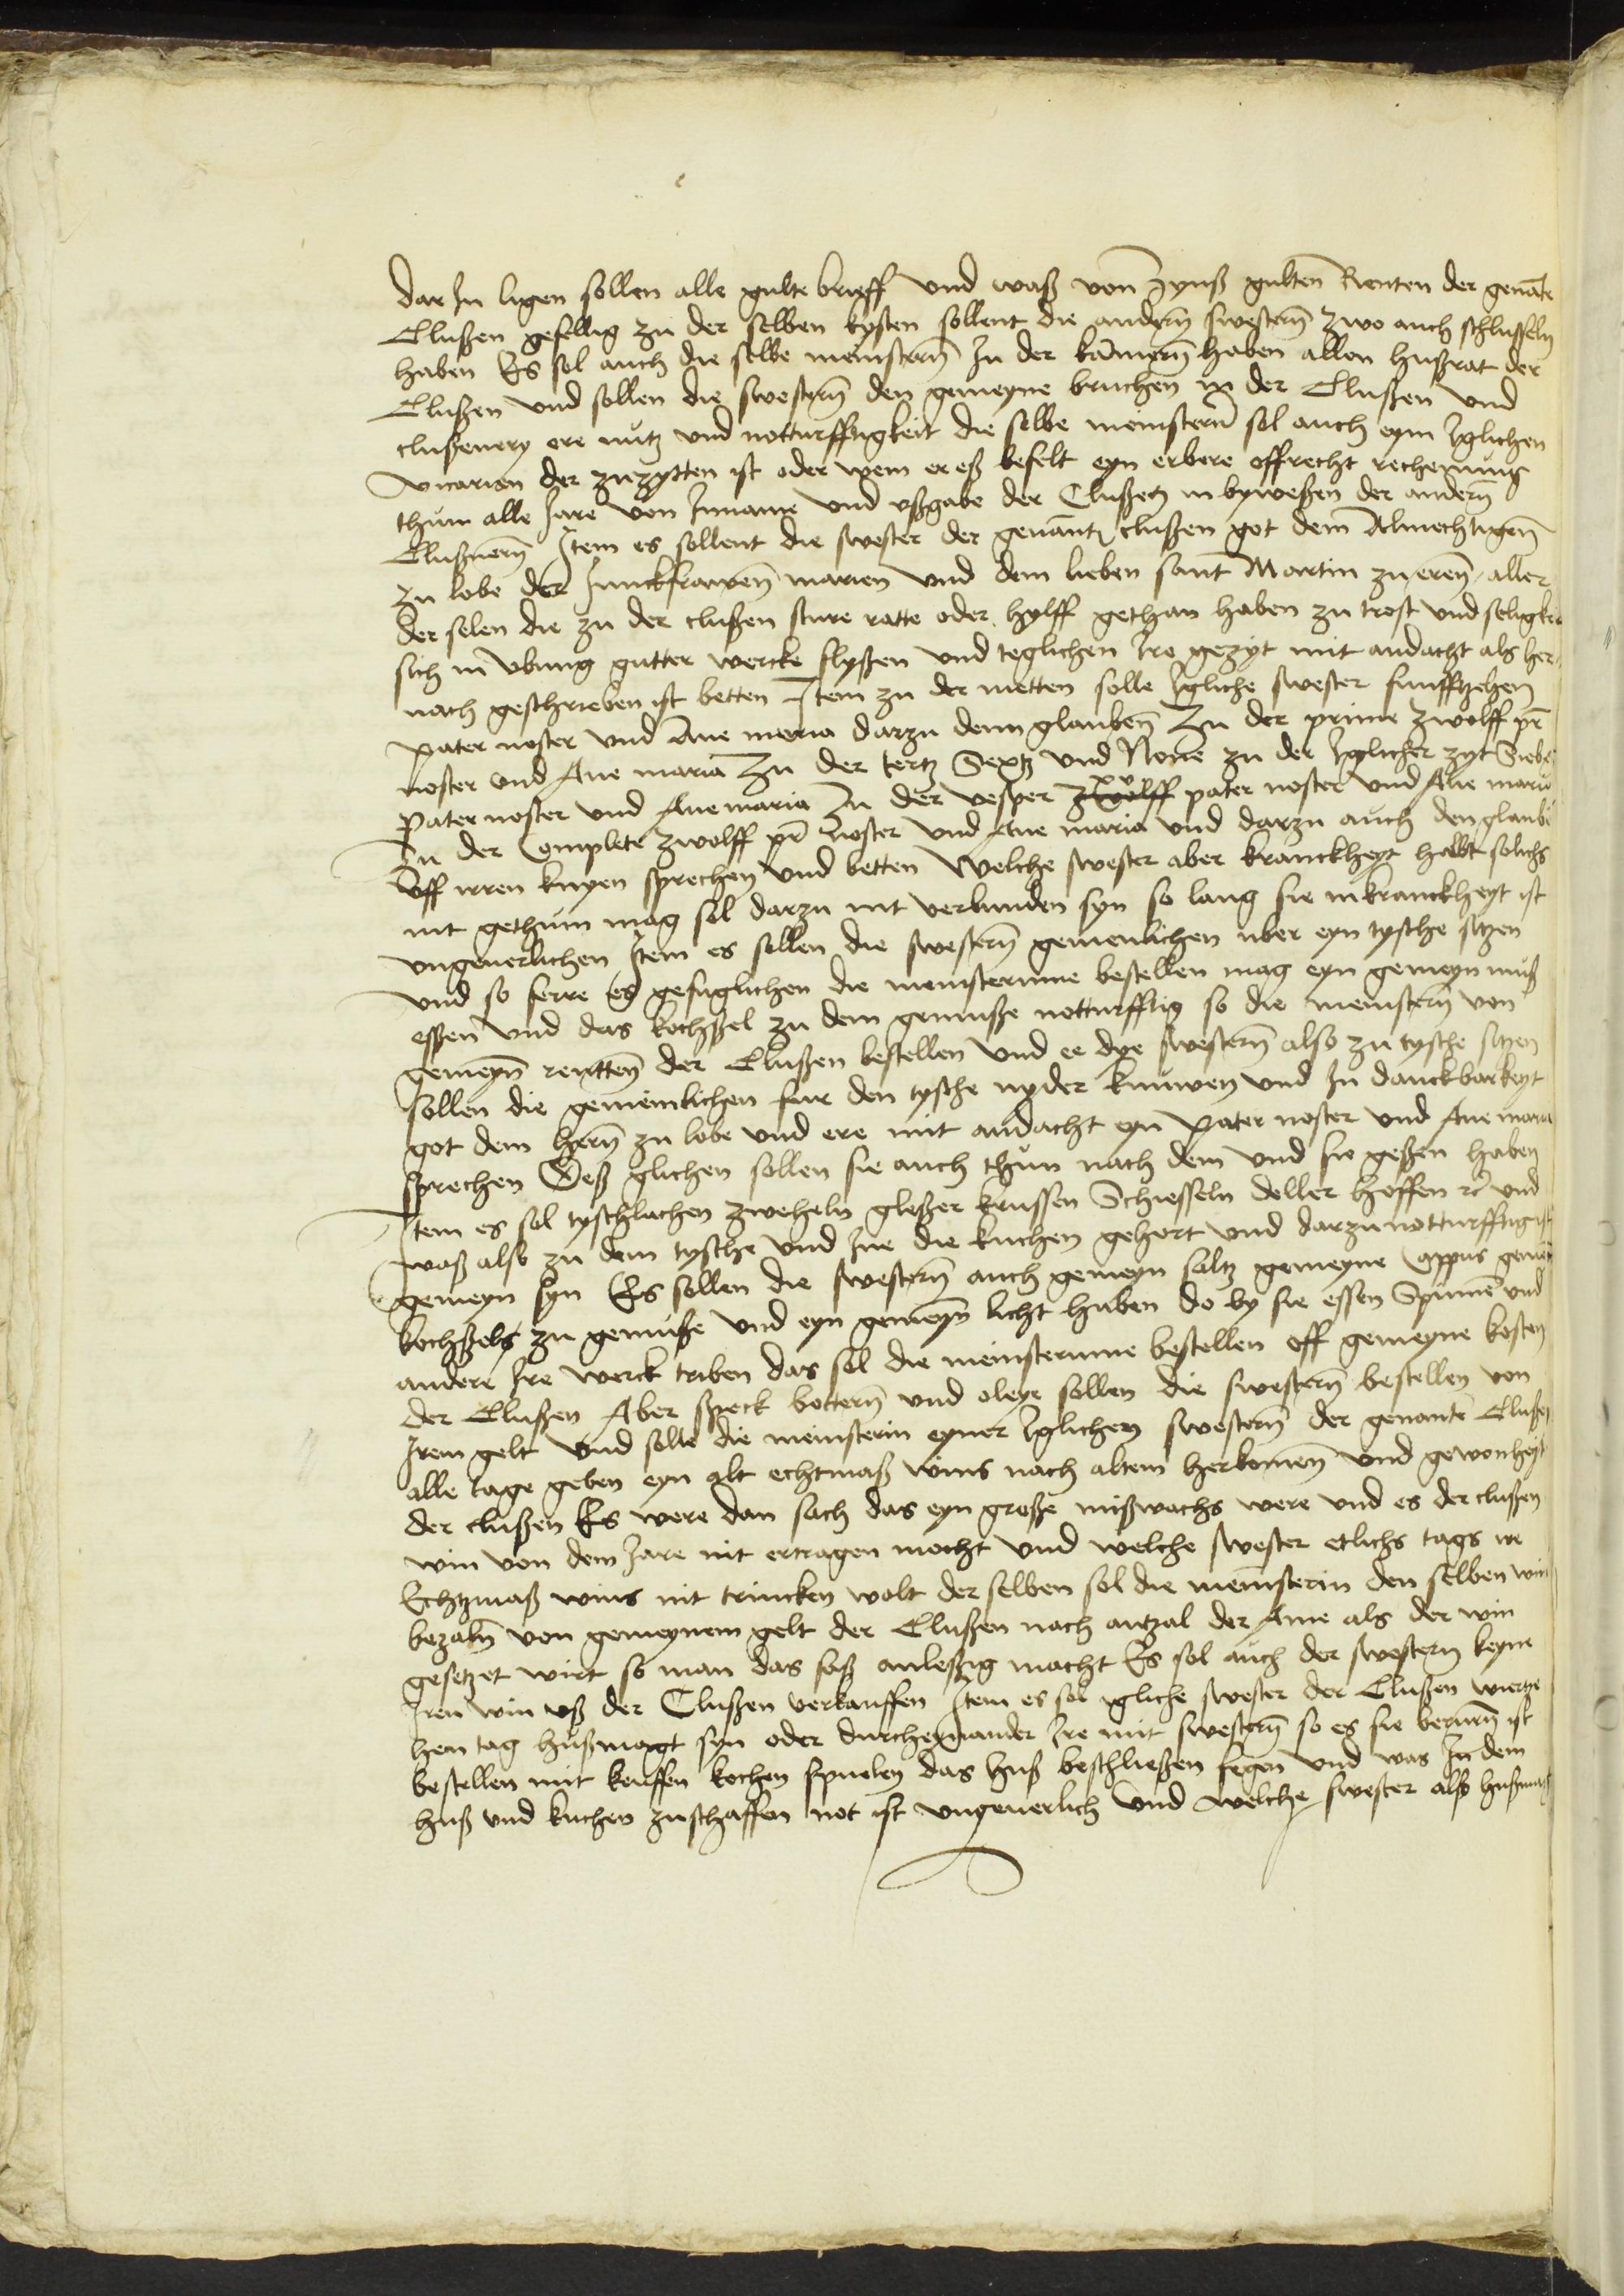 dar In ligen sollen alle gulte brieff und waß von zynß gulten Renten der genāte
Clußen gefellig zu der selben kysten sollent die andern swestern zwo auch schlusseln
haben Es sol auch die selbe meinstern In der kamern haben allen hußrat der
Clußen und sollen die swestern den gemeyne bruchen in der Clußen und
clußenery ere nutz und notturfftigkeit die selbe meinstern sol auch eym Iglichen
vicarien der zuzytten ist oder wem er eß befelt eyn erbere offrecht rechenung
thun alle Jare von Inname und ußgabe der Clußen in bywesßen der andern
Clußnern Item es sollent die swester der genant clußen got dem Almechtigen
zu lobe der Junckfrawen marien und dem lieben sant Martin zu eren aller
der selen die zu der clußen sture ratte oder hylff gethan haben zu trost und seligkei
sich in ubung gutter wercke flyßen und teglichen Ire gezyt mit andacht als her
nach geschrieben ist betten Item zu der metten solle Igliche swester funfftzehen
pater noster und Ave maria darzu denn glauben Zu der prime zwolff pr̄
noster und Ave maria Zu der tertz Sextz und None zu der Iglicher zyt Siebē
Pater noster und Ave maria Zu der vesper zwolff xv pater noster und Ave maria
Zu der Complete zwolff pr̄ noster und Ave maria und darzu auch den glaubē
Uff irren knyen sprechen und betten Welche swester aber kranckheyt halbt solichs
nit gethun mag sol darzu nit verbunden syn so lang sie in kranckheyt ist
ungeverlichen Item es sollen die swestern gemenlichen uber eyn tysche sitzen
und so ferre es gefuglichen die meinsterinne bestellen mag eyn gemeyn muß
essen und das kochßel zu dem gemuße notturfftig so die meinstern von
gemeyn rentten der Clußen bestellen und ee dye swestern also zu tysche sitzen
sollen die gemeinlichen fur den tysche nyder knuwen und In danckbarkeyt
got dem hern zu lobe und ere mit andacht eyn Pater noster und Ave maria
sprechen Deß glichen sollen sie auch thun nach dem und sie geßen haben
Item es sol tyschlachen zweheln gleßer krussen Schiesseln deller heffen rc und
waß also zu dem tysche und Inn die kuchen gehort und darzu notturfftig ist
gemeyn syn Es sollen die swestern auch gemeyn saltz gemeyne Cappus gemeȳ
kochßels zu gemuße und eyn gemeyn licht haben do by sie essen Spinnē und
andere Ire werck triben das sol die meinsterinne bestellen off gemeyne kosten
der Clußen Aber speck bottern und oleye sollen die swestern bestellen von
Irem gelt und solle die meinsterin eyner Iglichen swestern der genante Clußen
alle tage geben eyn alt echtmaß wins nach altem herkomen und gewonheyt
der clußen Es were dan sach das eyn große mißwachs were und es der clußen
win von dem Jare nit ertragen mocht und welche swester etlichs tags ire
Echtzmaß wins nit trincken wolt der selben sol die meinsterin den selben win
bezaln von gemeynem gelt der Clußen nach antzal der Ame als der win
gesetzet wirt so man das faß anleßig macht Es sol auch der swestern keyne
Iren win uß der Clußen verkauffen Item es sol igliche swester der Clußen viertze
hen tag hußmagt syn oder durcheinander Ire mit swestern so es sie beruren ist
bestellen mit keuffen kochen spuelen das huß beschließen fegen und was In dem
huß und kuchen zuschaffen not ist ungeverlich Und welche swester also hußmagt